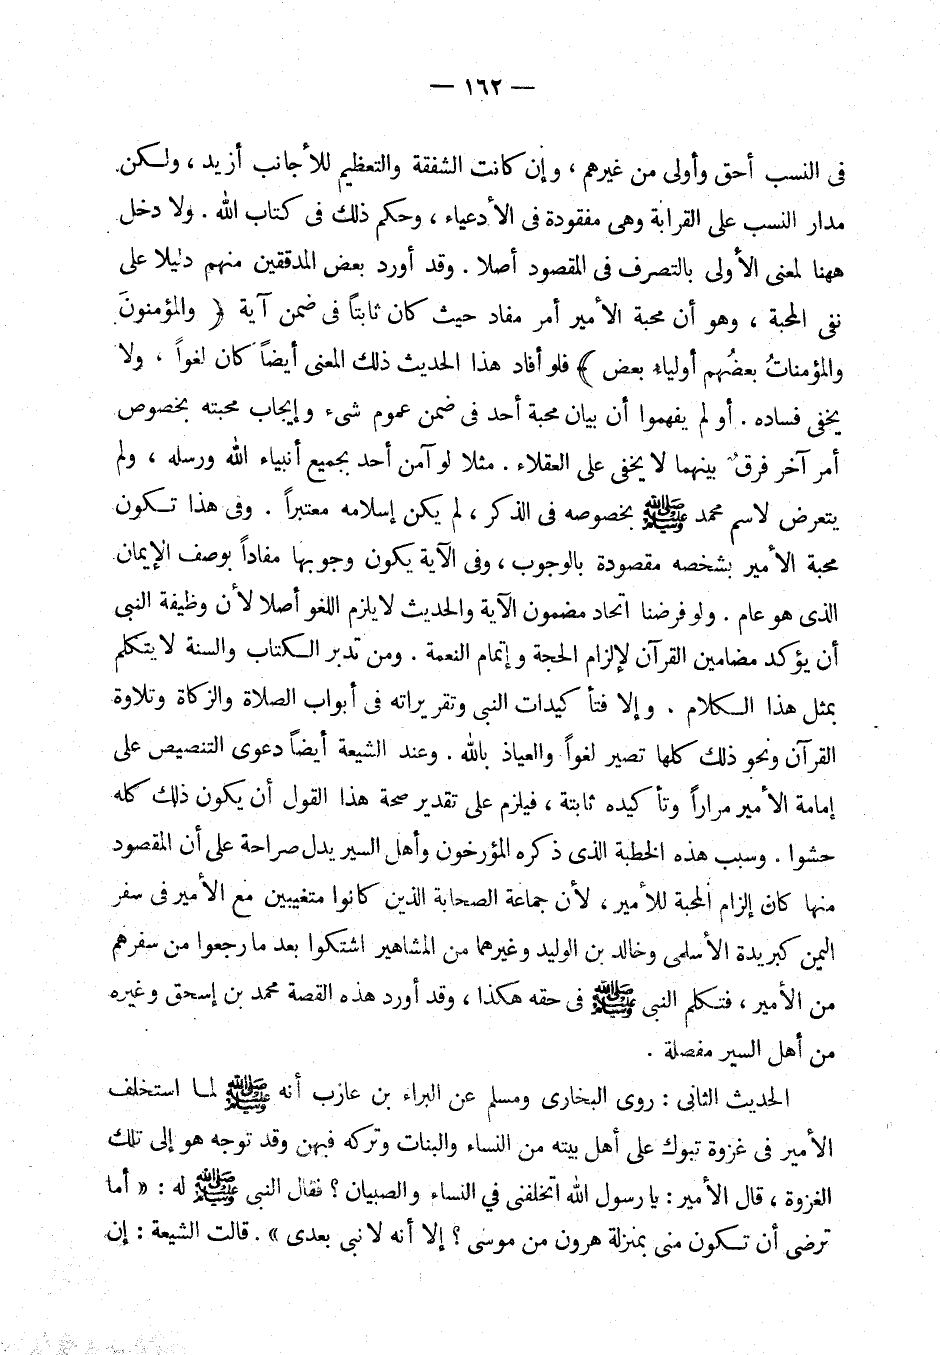 — ١٦٢ —
فى النسب أحق وأولى من غيرهم ، وإن كانت الشفقة والتعظيم للأجانب أزيد ، ولكن
مدار النسب على القرابة وهى مفقودة فى الأدعياء ، وحكم ذلك فى كتاب الله . ولا دخل
ههنا لمعنى الأولى بالتصرف فى المقصود أصلا . وقد أورد بعض المدققين منهم دليلا على
نفى المحبة ، وهو أن محبة الأمير أمر مفاد حيث كان ثابتاً فى ضمن آية ﴿ والمؤمنونَ
والمؤمناتُ بعضُهم أولياء بعض ﴾ فلو أفاد هذا الحديث ذلك المعنى أيضاً كان لغواً ، ولا
يخفى فساده . أو لم يفهموا أن بيان محبة أحد فى ضمن عموم شىء وإيجاب محبته بخصوص
أمر آخر فرق بينهما لا يخفى على العقلاء . مثلا لو آمن أحد بجميع أنبياء الله ورسله ، ولم
يتعرض لاسم محمد ﷺ بخصوصه فى الذكر ، لم يكن إسلامه معتبراً . وفى هذا تكون
محبة الأمير بشخصه مقصودة بالوجوب ، وفى الآية يكون وجوبها مفاداً بوصف الإيمان
الذى هو عام . ولو فرضنا اتحاد مضمون الآية والحديث لا يلزم اللغو أصلا لأن وظيفة النبى
أن يؤكد مضامين القرآن لإلزام الحجة وإتمام النعمة . ومن تدبر الكتاب والسنة لا يتكلم
بمثل هذا الكلام . وإلا فتأكيدات النبى وتقريراته فى أبواب الصلاة والزكاة وتلاوة
القرآن ونحو ذلك كلها تصير لغواً والعياذ بالله . وعند الشيعة أيضاً دعوى التنصيص على
إمامة الأمير مراراً وتأكيده ثابتة ، فيلزم على تقدير صحة هذا القول أن يكون ذلك كله
حشوا . وسبب هذه الخطبة الذى ذكره المؤرخون وأهل السير يدل صراحة على أن المقصود
منها كان إلزام المحبة للأمير ، لأن جماعة الصحابة الذين كانوا متغيبين مع الأمير فى سفر
اليمن كبريدة الأسلمى وخالد بن الوليد وغيرهما من المشاهير اشتكوا بعد ما رجعوا من سفرهم
من الأمير ، فتكلم النبى ﷺ فى حقه هكذا ، وقد أورد هذه القصة محمد بن إسحق وغيره
من أهل السير مفصلة .
الحديث الثانى : روى البخارى ومسلم عن البراء بن عازب أنه ﷺ لما استخلف
الأمير فى غزوة تبوك على أهل بيته من النساء والبنات وتركه فيهن وقد توجه هو إلى تلك
الغزوة ، قال الأمير : يا رسول الله اتخلفنى في النساء والصبيان ؟ فقال النبى ﷺ له : « أما
ترضى أن تكون منى بمنزلة هرون من موسى ؟ إلا أنه لا نبى بعدى » . قالت الشيعة : إن